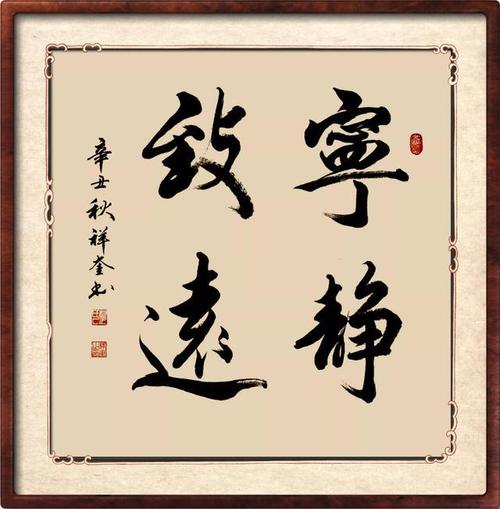 寧静
致遠
辛丑秋祥奎书